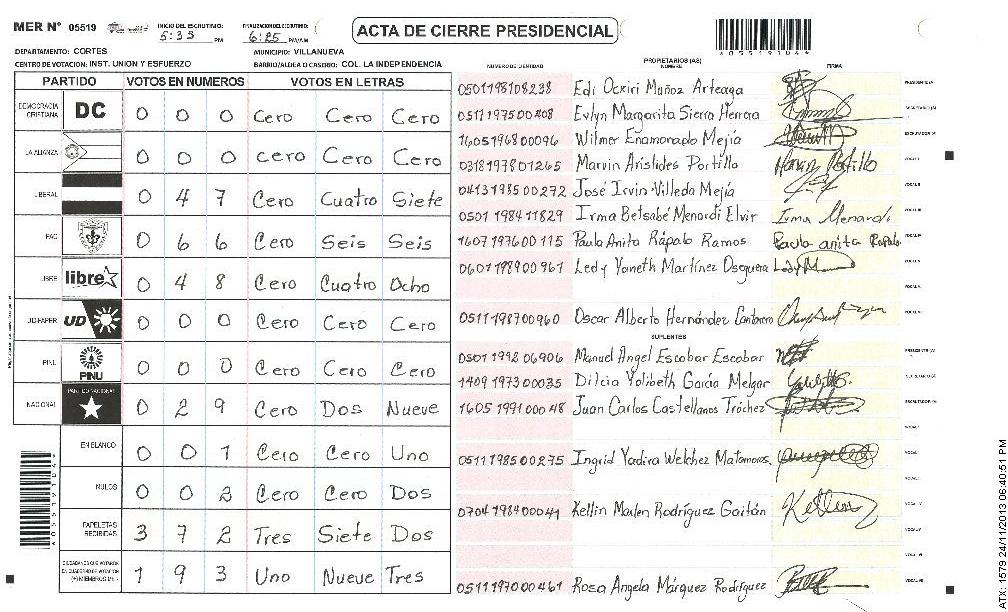 MER N° 05519
INICIO DEL ESCRUTINIO: 5:33 PM
FINALIZACION DEL ESCRUTINIO: 6:25 PM/AM
ACTA DE CIERRE PRESIDENCIAL
DEPARTAMENTO: CORTES
MUNICIPIO: VILLANUEVA
CENTRO DE VOTACION: INST. UNION Y ESFUERZO
BARRIO/ALDEA O CASERIO: COL. LA INDEPENDENCIA
PARTIDO VOTOS EN NUMEROS VOTOS EN LETRAS
DEMOCRACIA CRISTIANA DC 0 0 0 Cero Cero Cero
LA ALIANZA 0 0 0 cero Cero Cero
LIBERAL 0 4 7 Cero Cuatro Siete
PAC 0 6 6 Cero Seis Seis
LIBRE libre 0 4 8 Cero Cuatro Ocho
UD-FAPER UD 0 0 0 Cero Cero Cero
PINU PINU 0 0 0 Cero Cero Cero
NACIONAL PARTIDO NACIONAL 0 2 9 Cero Dos Nueve
EN BLANCO 0 0 1 Cero Cero Uno
NULOS 0 0 2 Cero Cero Dos
PAPELETAS RECIBIDAS 3 7 2 Tres Siete Dos
CIUDADANOS QUE VOTARON
EN CUADERNO DE VOTACION
(+) MIEMBROS MER 1 9 3 Uno Nueve Tres
PROPIETARIOS (AS)
NUMERO DE IDENTIDAD NOMBRE FIRMA
0501198108238 Edi Ocxiri Muñoz Arteaga PRESIDENTE(A)
0511197500408 Evlyn Margarita Sierra Herrera SECRETARIO (A)
1605196800096 Wilmer Enamorado Mejía ESCRUTADOR (A)
0318197801265 Marvin Aristides Portillo Marvin Portillo VOCAL I
0413198500272 José Irvin Villeda Mejía VOCAL II
0501198411829 Irma Betsabé Menardi Elvir Irma Menardi VOCAL III
1607197600115 Paula Anita Rápalo Ramos Paula anita Rapalo VOCAL IV
0601198900961 Ledy Yaneth Martínez Oseguera VOCAL V
0511198700960 Oscar Alberto Hernández Cantarero VOCAL VI
SUPLENTES
0501199806906 Manuel Angel Escobar Escobar PRESIDENTE (A)
1409197300035 Dilcia Yolibeth García Melgar SECRETARIO(A)
1605199100048 Juan Carlos Castellanos Tróchez ESCRUTADOR (A)
VOCAL I
0511198500275 Ingrid Yadira Welchez Matamoros VOCAL II
VOCAL III
0704198400041 Kellin Marlen Rodríguez Gaitán Kellin VOCAL IV
VOCAL V
VOCAL VI
0511197000461 Rosa Angela Márquez Rodríguez VOCAL VII
ATX: 1579 24/11/2013 06:40:51 PM